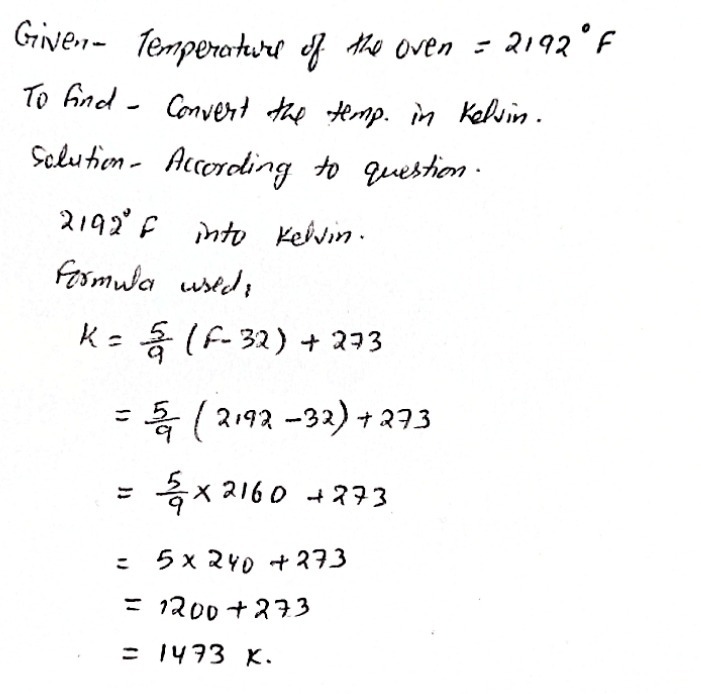 Given- Temperature of the oven = 2192°F
To find - Convert the temp. in Kelvin.
Solution- According to question.
2192°F into Kelvin.
Formula used;
K = 5/9 (F-32) + 273
= 5/9 (2192 -32) + 273
= 5/9 x 2160 + 273
= 5 x 240 + 273
= 1200 + 273
= 1473 K.